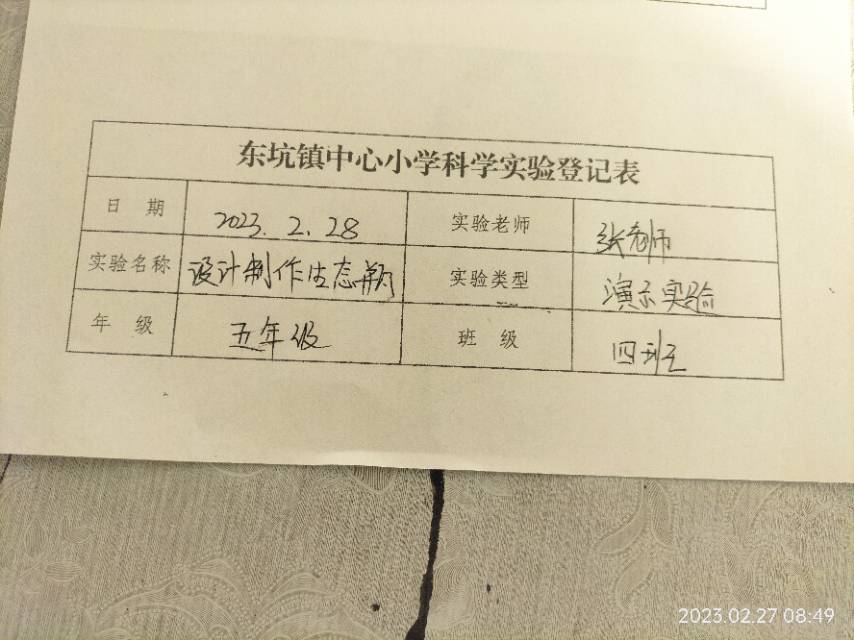 东坑镇中心小学科学实验登记表
日 期 2023.2.28 实验老师 张老师
实验名称 设计制作生态瓶 实验类型 演示实验
年 级 五年级 班 级 四班
2023.02.27 08:49